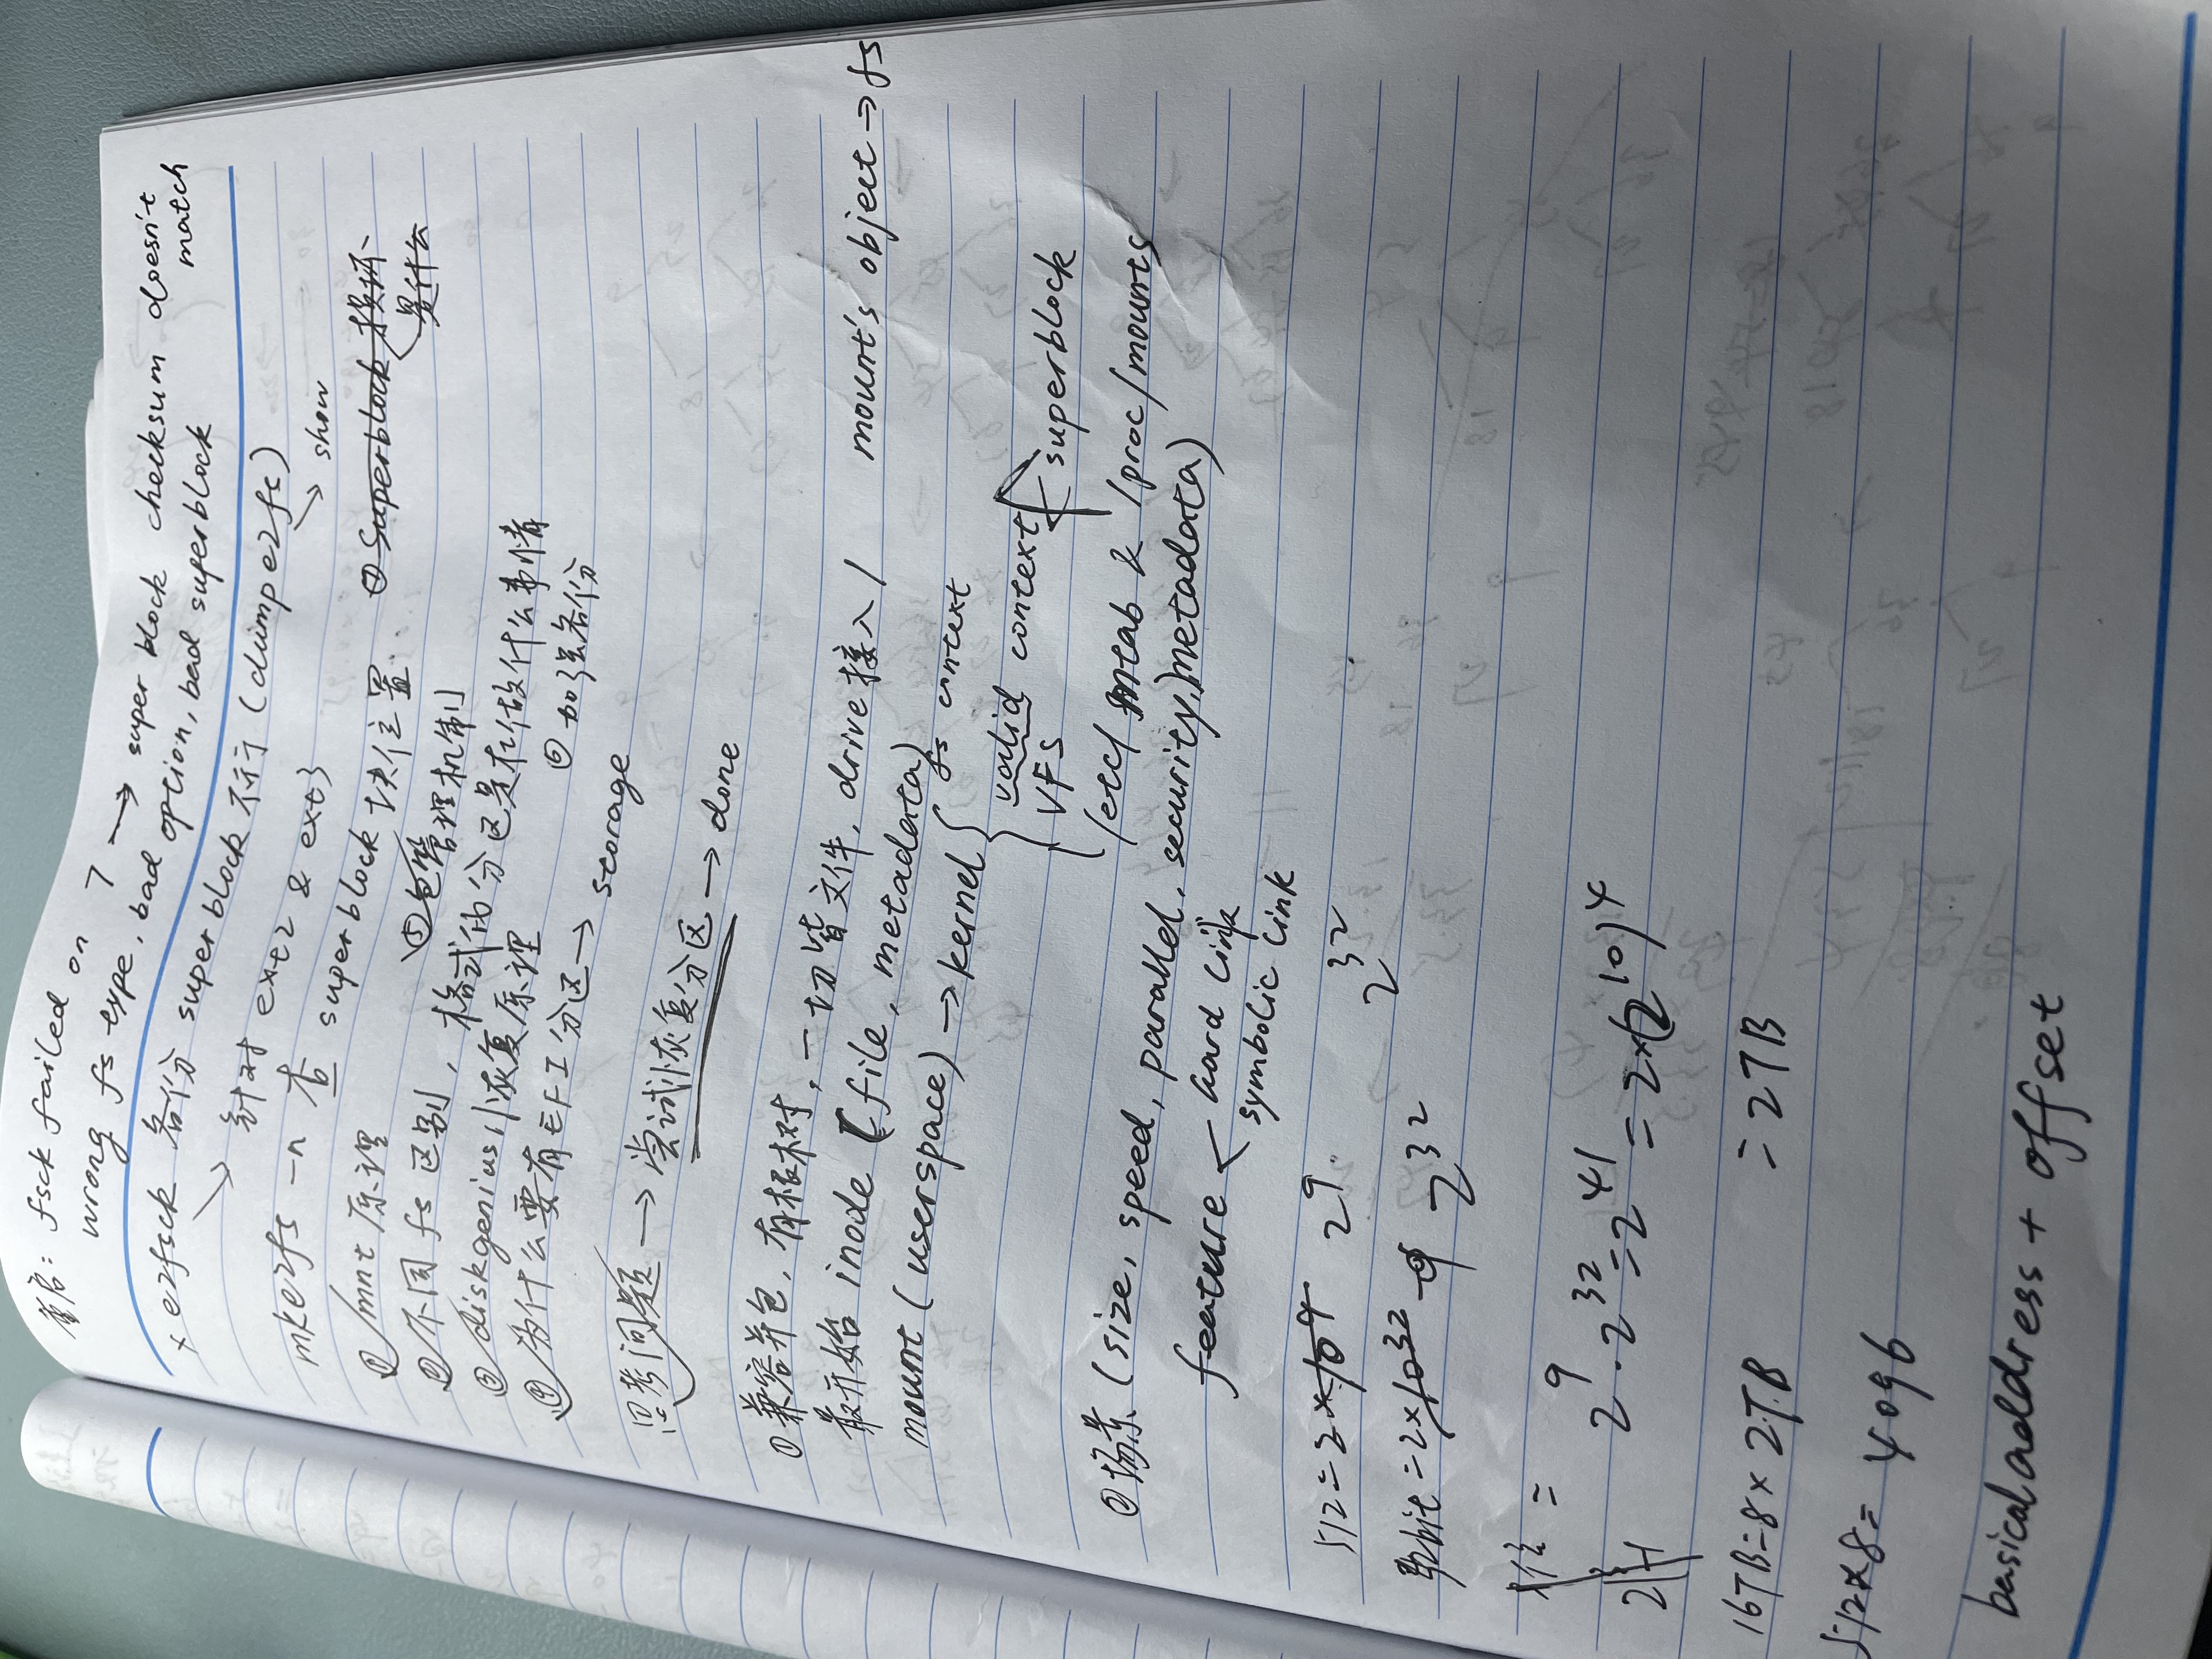 fsck failed on 7 → super block checksum doesn't match
wrong fs type, bad option, bad superblock
x e2fsck 备份 superblock 不行 (dumpe2fs)
↘ 针对 ext2 & ext3
↘ show
mke2fs -n 查 superblock 块位置
① /mnt 原理
⑦ Superblock 损坏
是什么
② 不同 fs 区别, 格式化分区是在做什么事情
⑤ 包管理机制
③ diskgenius 恢复原理
④ 为什么要有 EFI 分区 → storage
⑥ 加强备份
思考问题 → 尝试恢复分区 → done
① 兼容并包, 有根树, 一切皆文件, drive 接入 /
mount's object → fs
最开始 inode (file, metadata)
mount (userspace) → kernel { fs context
valid context
VFS
superblock
/etc/mtab & /proc/mounts
② 场景 (size, speed, parallel, security, metadata)
feature < hard link
symbolic link
512 = 2 × 10⁹ 2⁹
2³²
32bit = 2 × 10³² 2³²
2⁹ · 2³² = 2⁴¹ = 2×(2¹⁰)⁴
16TB = 8 × 2TB
= 2TB
512 × 8 = 4096
basical address + offset